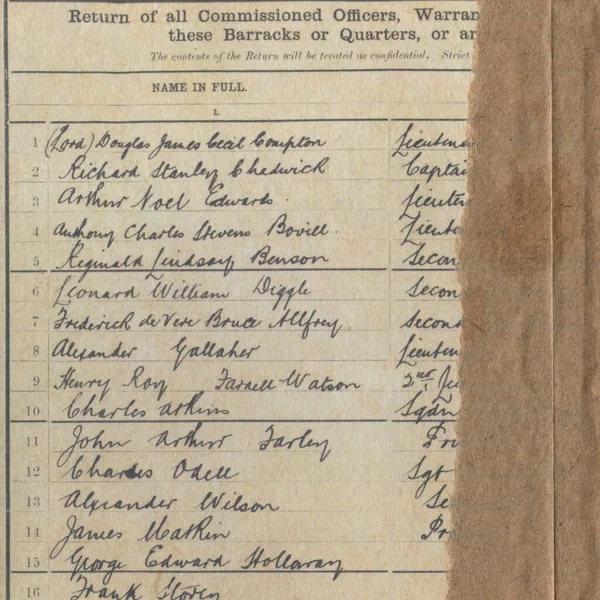 Return of all Commissioned Officers, Warran
these Barracks or Quarters, or an
The contents of the Return will be treated as confidential. Strict
NAME IN FULL.
1.
1 (Lord) Douglas James Cecil Compton Lieutenan
2 Richard Stanley Chadwick Captai
3 Arthur Noel Edwards Lieuten
4 Anthony Charles Stevens Bovill. Lieute
5 Reginald Lindsay Benson Secon
6 Leonard William Diggle Secon
7 Frederick de Vere Bruce Allfrey Second
8 Alexander Gallaher Lieuten
9 Henry Roy Farnell-Watson 2nd Lie
10 Charles Atkins Sqdn
11 John Arthur Farley Pri
12 Charles Odell Sgt
13 Alexander Wilson Se
14 James Matkin Pr
15 George Edward Holloway
16 Frank Storey